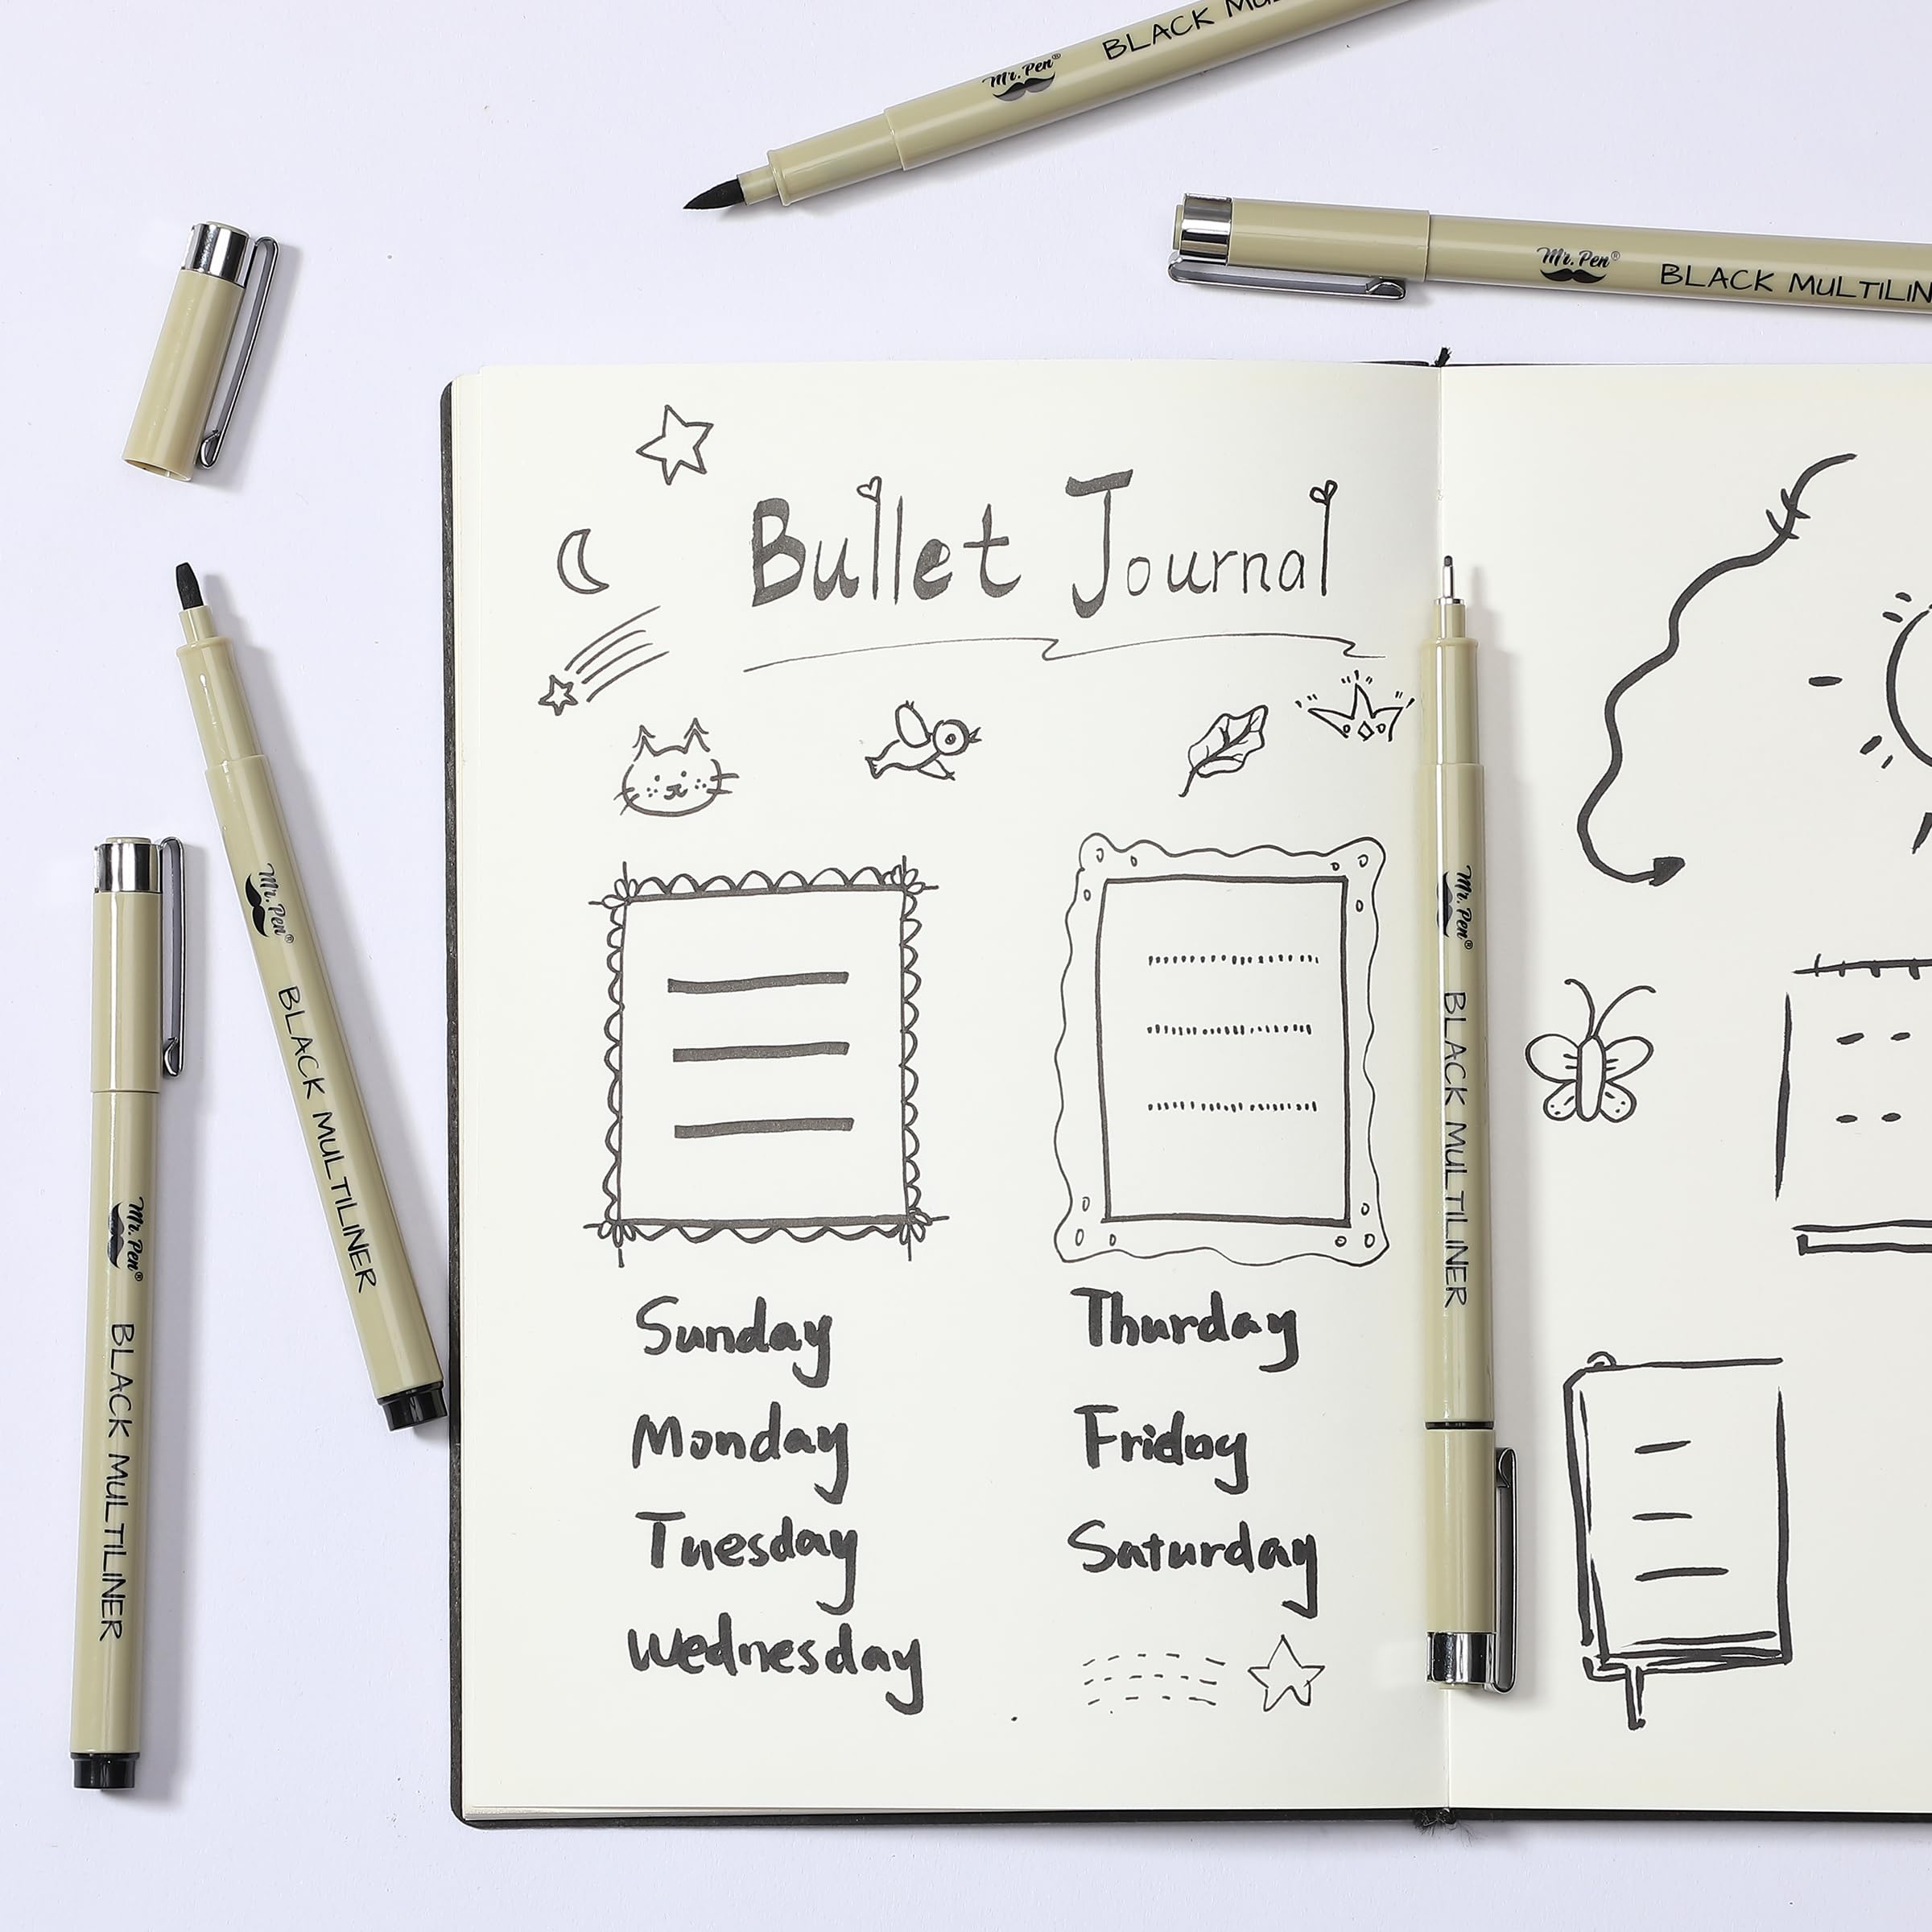 Mr. Pen® BLACK MUL
Mr. Pen® BLACK MULTILIN
Bullet Journal
Mr. Pen® BLACK MULTILINER
Mr. Pen® BLACK MULTILINER
Mr. Pen® BLACK MULTILINER
Sunday
Monday
Tuesday
Wednesday
Thurday
Friday
Saturday